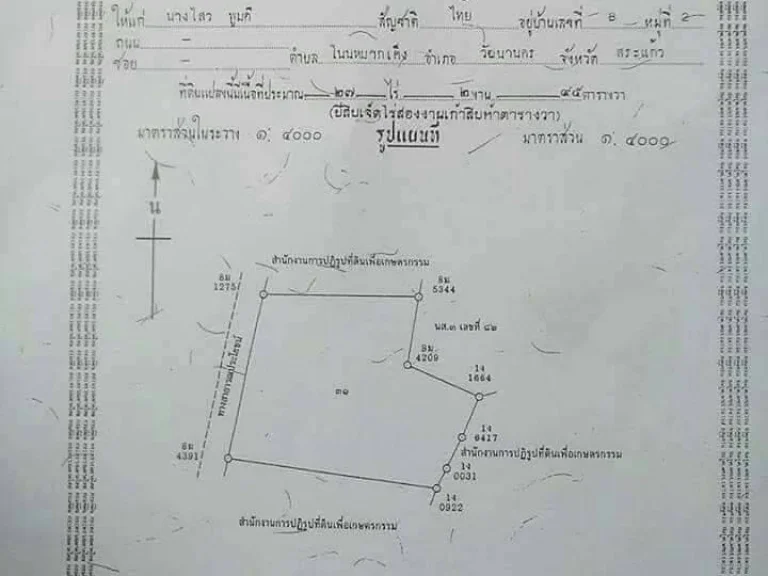 ให้แก่ นางไสว ชูมคี สัญชาติ ไทย อยู่บ้านเลขที่ 8 หมู่ที่ 2
ถนน –
ซอย – ตำบล โนนหมากเค็ง อำเภอ วัฒนานคร จังหวัด สระแก้ว
ที่ดินแปลงนี้มีเนื้อที่ประมาณ ๒๗ ไร่ ๒ งาน ๙๕ ตารางวา
(ยี่สิบเจ็ดไร่สองงานเก้าสิบห้าตารางวา)
มาตราส่วนในระวาง ๑: ๔๐๐๐ รูปแผนที่ มาตราส่วน ๑: ๔๐๐๐
น
สำนักงานการปฏิรูปที่ดินเพื่อเกษตรกรรม
8ม
1275
8ม
5344
นส.๓ เลขที่ ๘๒
8ม.
4209
ทางสาธารณประโยชน์
14
1664
๓๑
14
6417
สำนักงานการปฏิรูปที่ดินเพื่อเกษตรกรรม
8ม
4391
14
0031
14
0922
สำนักงานการปฏิรูปที่ดินเพื่อเกษตรกรรม